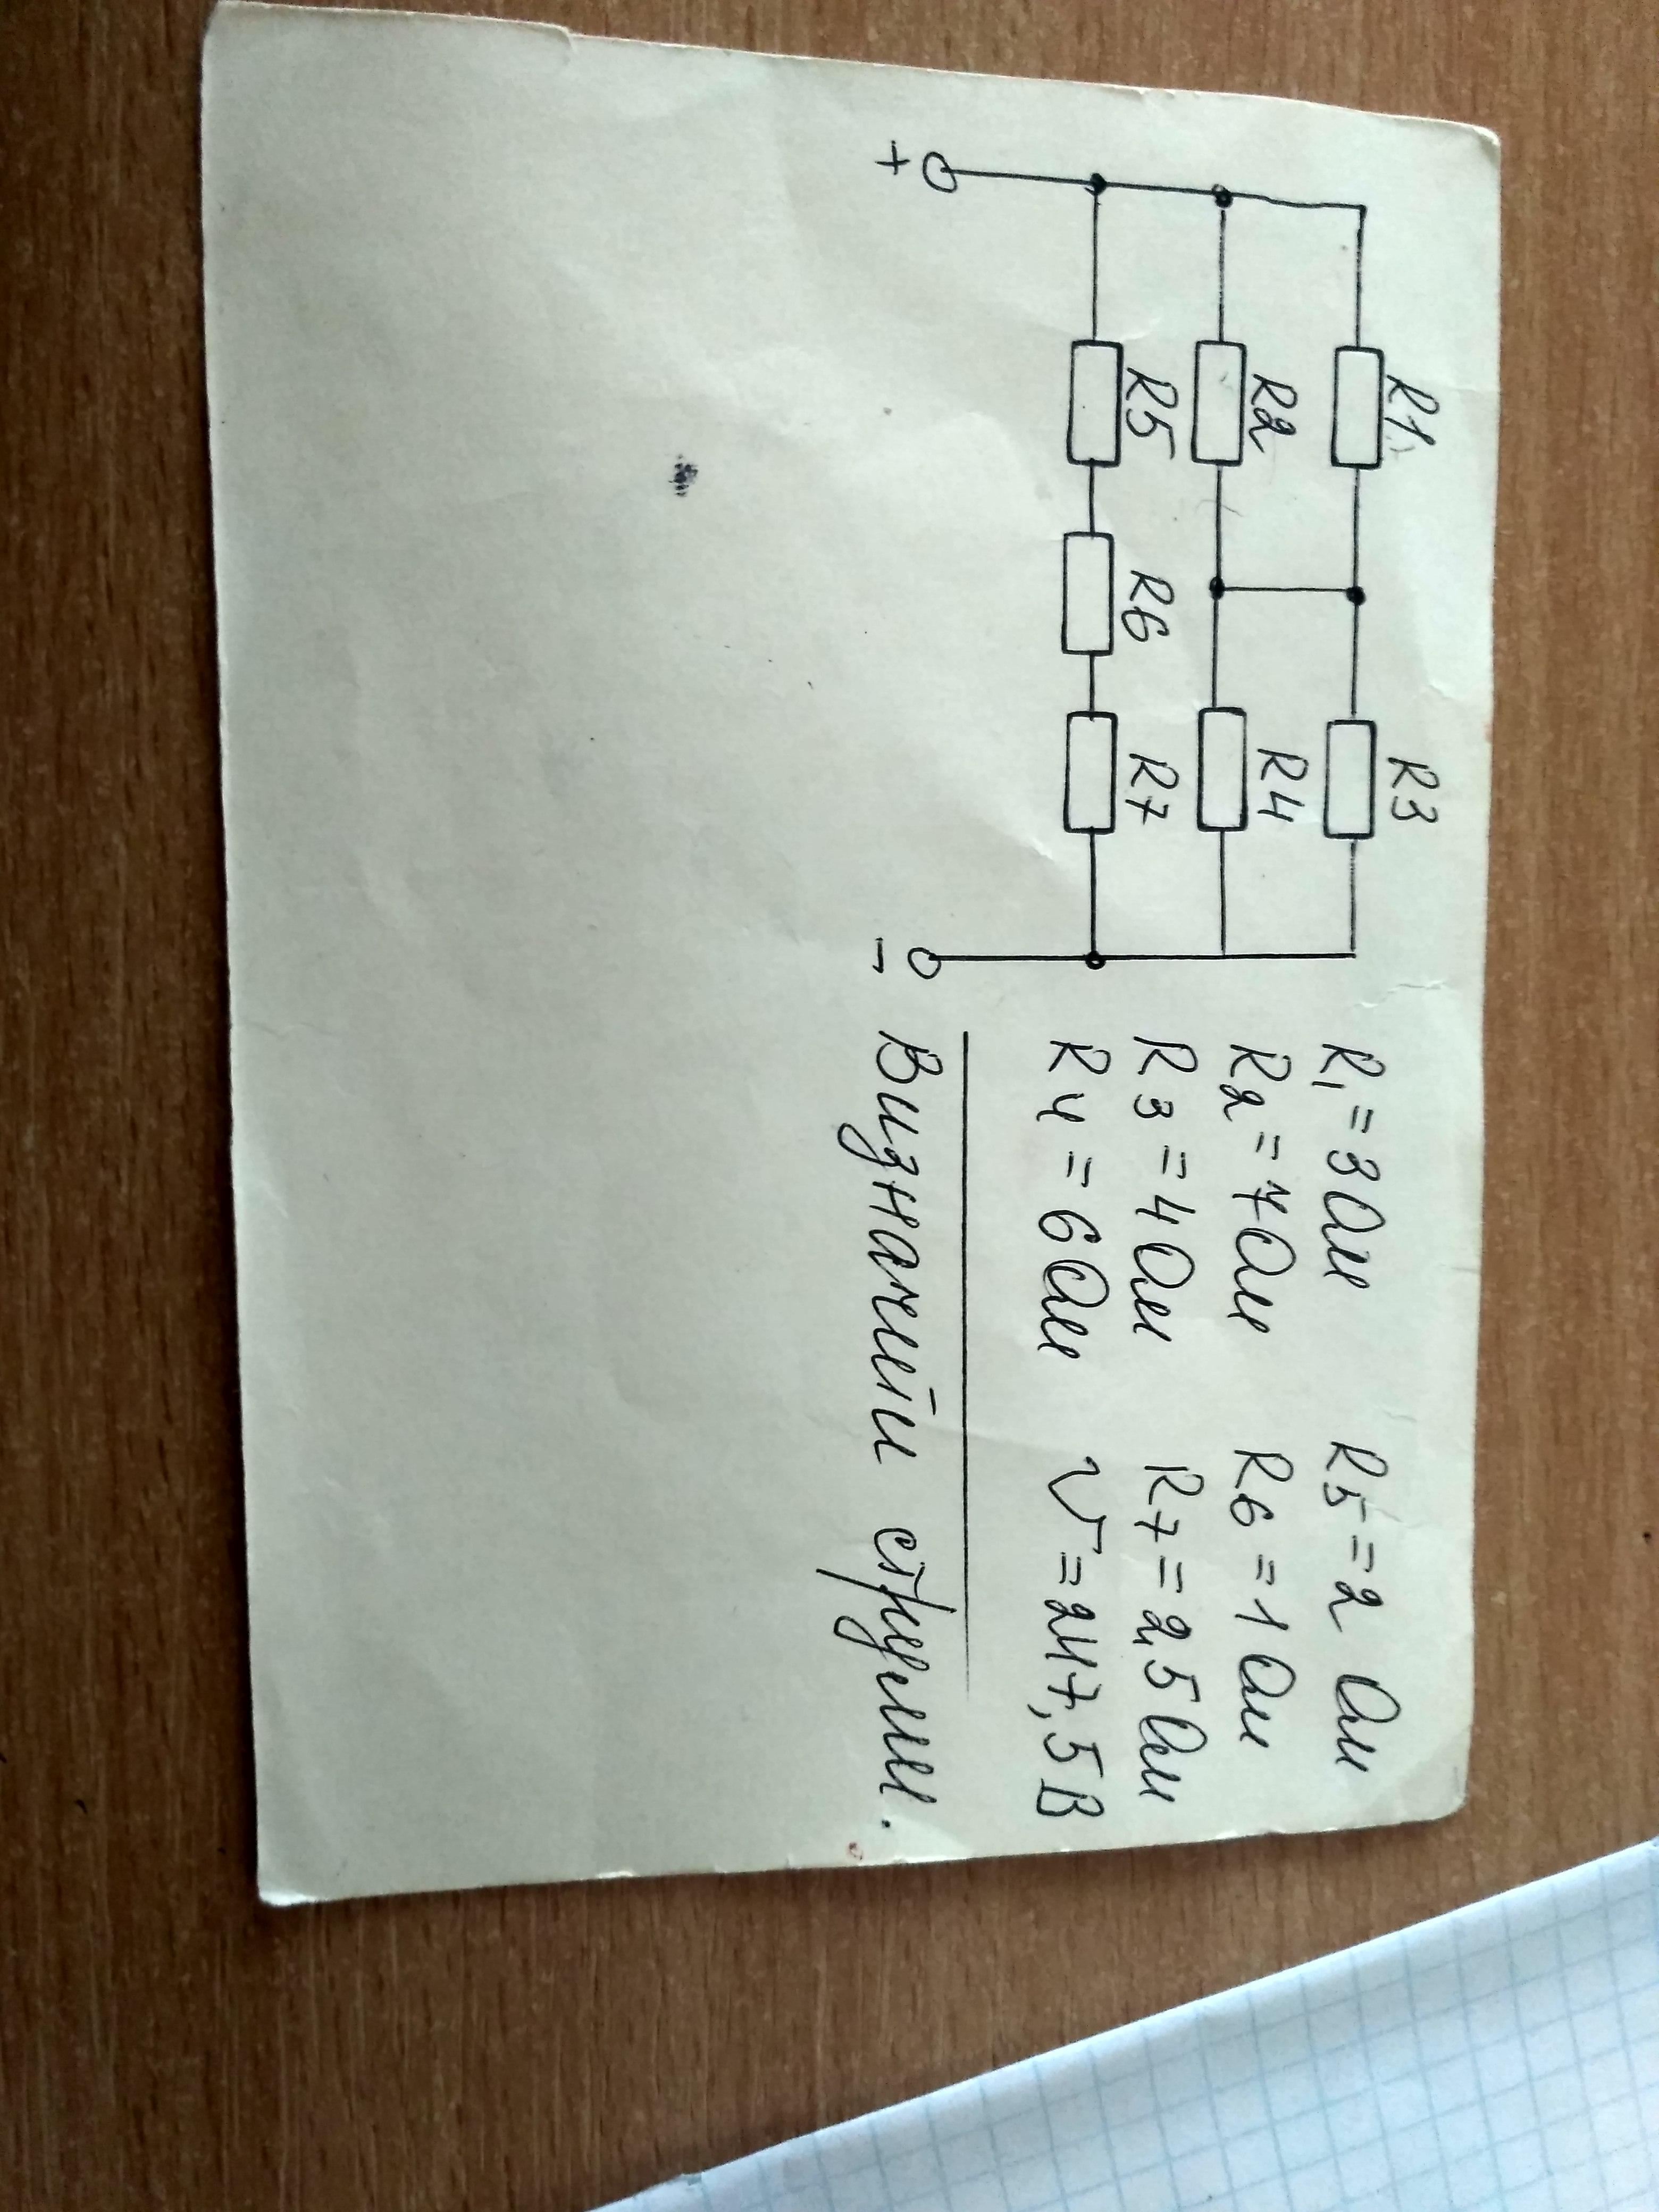 R1 R3
R2 R4
R5 R6 R7
+ -
R1=3Ом R5=2 Ом
R2=7Ом R6=1Ом
R3=4Ом R7=2,5Ом
R4=6Ом U=247,5В
Визначити струми.